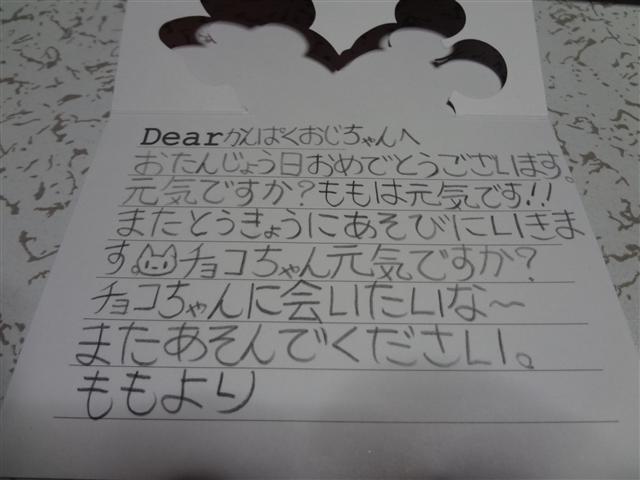 Dearがんぱくおじちゃんへ
おたんじょう日おめでとうございます。
元気ですか？ももは元気です!!
またとうきょうにあそびにいきま
す。チョコちゃん元気ですか？
チョコちゃんに会いたいな〜
またあそんでください。
ももより